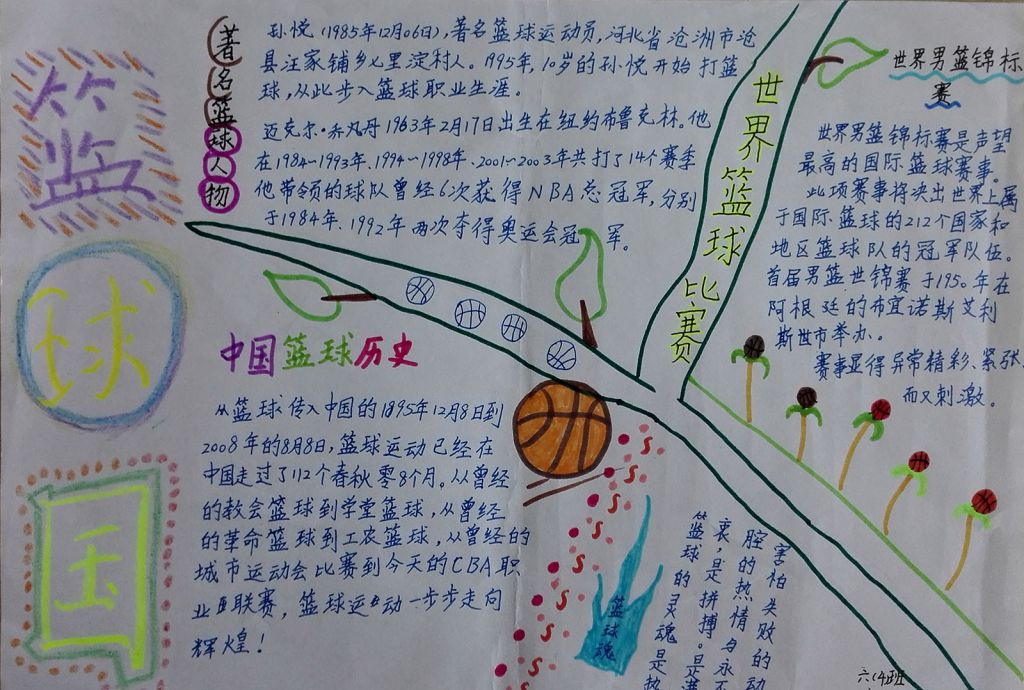 篮
球
国
著名篮球人物
孙悦(1985年12月06日),著名篮球运动员,河北省沧洲市沧
县汪家铺乡七里淀村人。1995年,10岁的孙悦开始打篮
球,从此步入篮球职业生涯。
迈克尔·乔丹1963年2月17日出生在纽约布鲁克林。他
在1984~1993年、1994~1998年、2001~2003年共打了14个赛季
他带领的球队曾经6次获得NBA总冠军,分别
于1984年、1992年两次夺得奥运会冠军。
世界篮球比赛
世界男篮锦标
赛
世界男篮锦标赛是声望
最高的国际篮球赛事。
此项赛事将决出世界上属
于国际篮球的212个国家和
地区篮球队的冠军队伍。
首届男篮世锦赛于1950年在
阿根廷的布宜诺斯艾利
斯世市举办。
赛事显得异常精彩、紧张
而又刺激。
中国篮球历史
从篮球传入中国的1895年12月8日到
2008年的8月8日,篮球运动已经在
中国走过了112个春秋零8个月。从曾经
的教会篮球到学堂篮球,从曾经
的革命篮球到工农篮球,从曾经的
城市运动会比赛到今天的CBA职
业联赛,篮球运动一步步走向
辉煌!
篮球魂
害怕失败的动
腔的热情与永不
衰,是拼搏。是满
篮球的灵魂是热
六(4)班